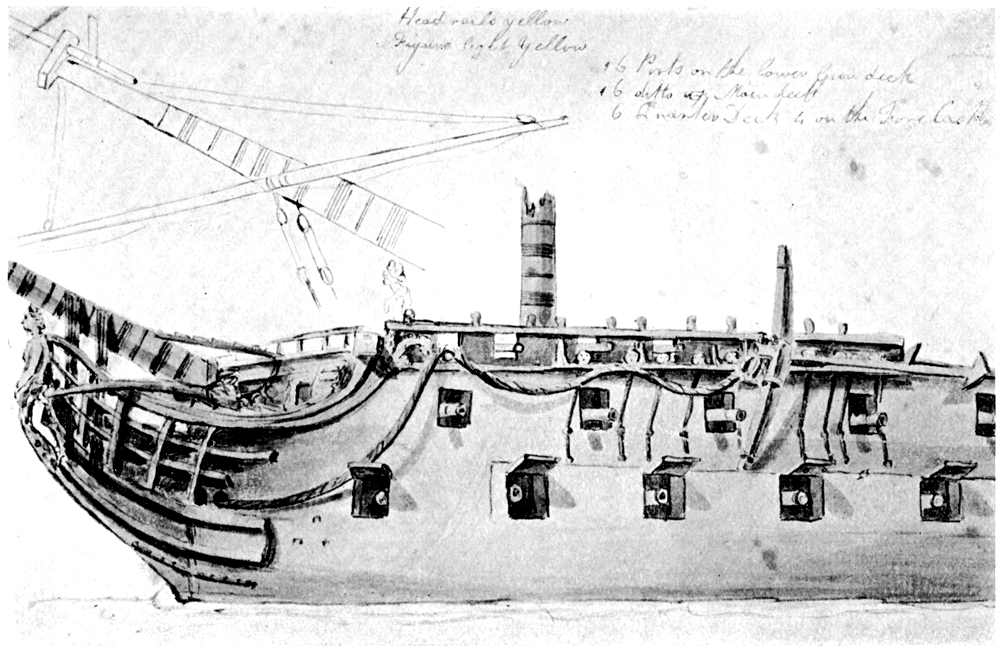 Head rails yellow
Figure light Yellow
16 Ports on the lower Gun deck
16 ditto Main deck
6 Quarter Deck & on the Fore Castle